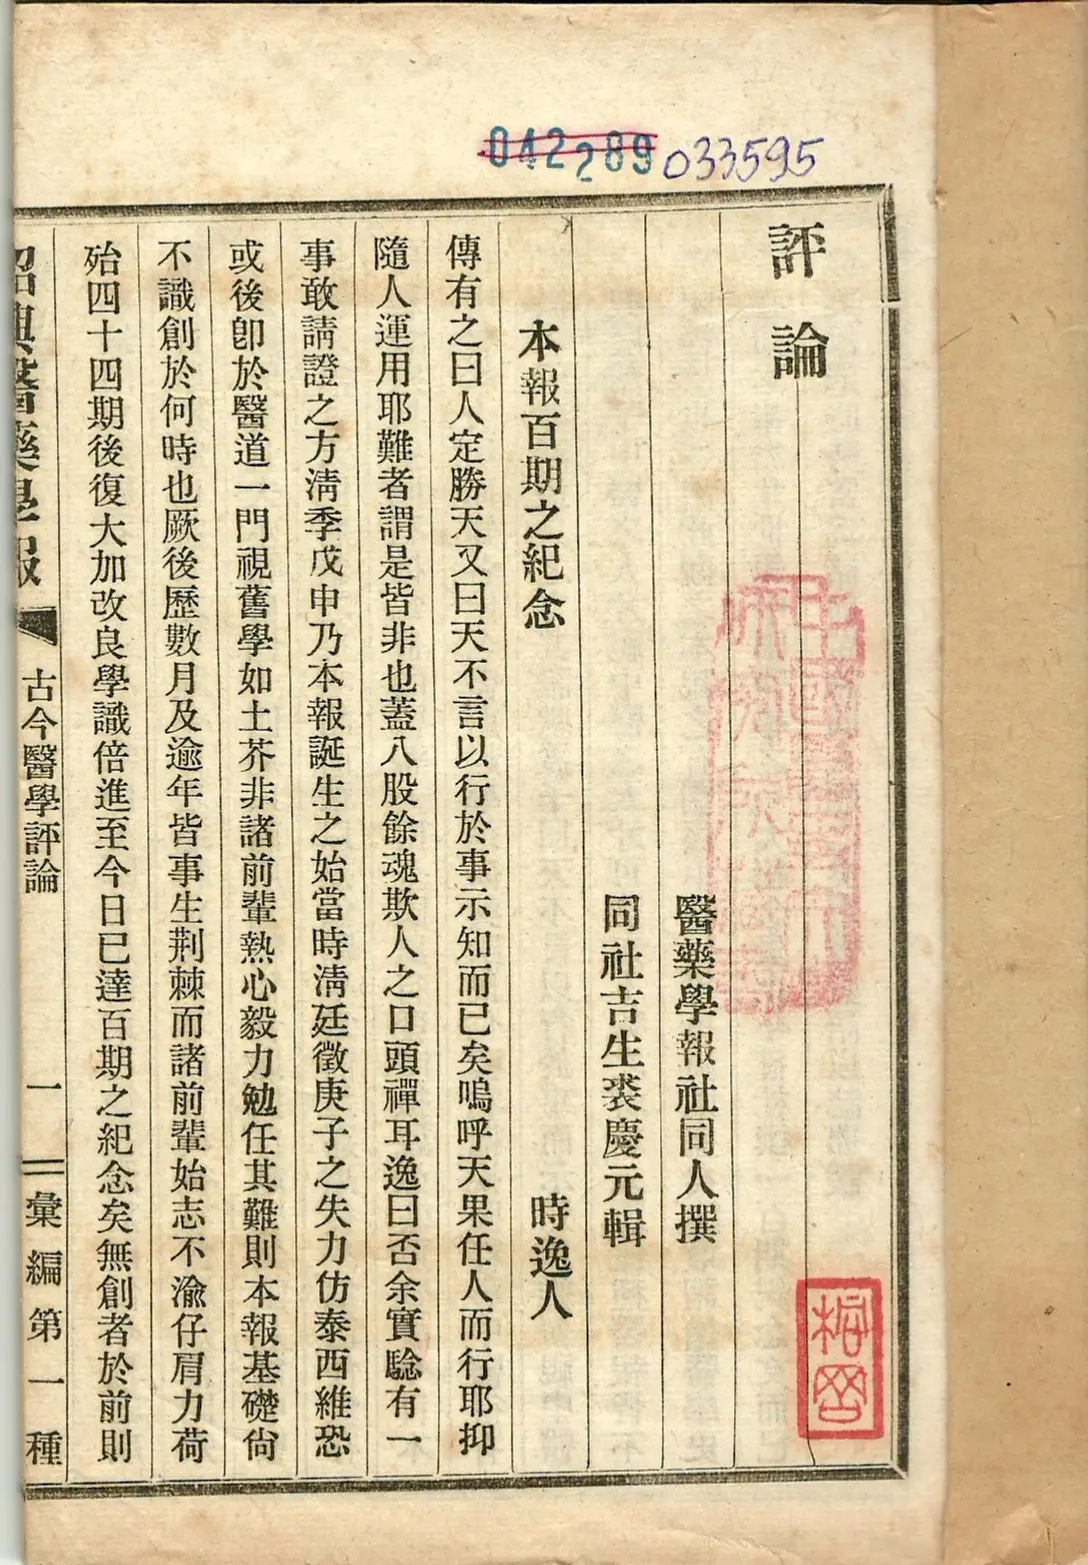 042289
033595
評論
醫藥學報社同人撰
同社吉生裘慶元輯
本報百期之紀念 時逸人
傳有之曰人定勝天又曰天不言以行於事示知而已矣嗚呼天果任人而行耶抑
隨人運用耶難者謂是皆非也蓋八股餘魂欺人之口頭禪耳逸曰否余實騐有一
事敢請證之方淸季戊申乃本報誕生之始當時淸廷徵庚子之失力仿泰西維恐
或後卽於醫道一門視舊學如土芥非諸前輩熱心毅力勉任其難則本報基礎尙
不識創於何時也厥後歷數月及逾年皆事生荆棘而諸前輩始志不渝仔肩力荷
殆四十四期後復大加改良學識倍進至今日已達百期之紀念矣無創者於前則
紹興醫藥學報 古今醫學評論 一 彙編第一種